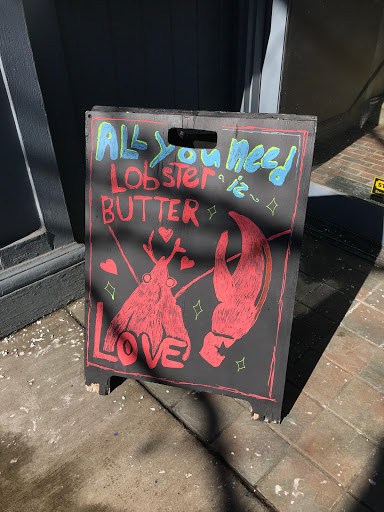 All you need
Lobster ~iz~
BUTTER
LOVE